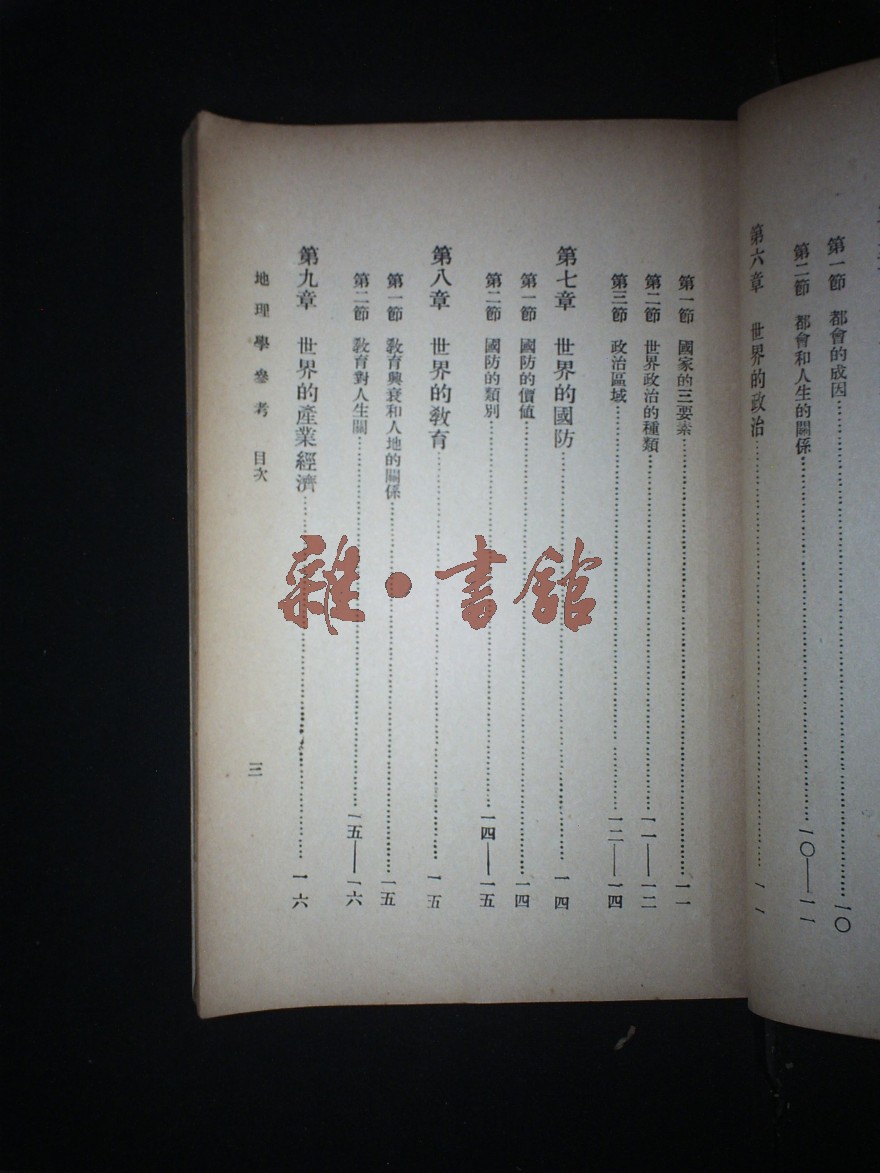 第一節　都會的成因……一〇
第二節　都會和人生的關係……一〇——一一
第六章　世界的政治……一一
第一節　國家的三要素……一一
第二節　世界政治的種類……一一——一二
第三節　政治區域……一二——一四
第七章　世界的國防……一四
第一節　國防的價値……一四
第二節　國防的類別……一四——一五
第八章　世界的教育……一五
第一節　教育興衰和人地的關係……一五
第二節　教育對人生關……一五——一六
第九章　世界的產業經濟……一六
地理學參考　目次　三
雜•書館